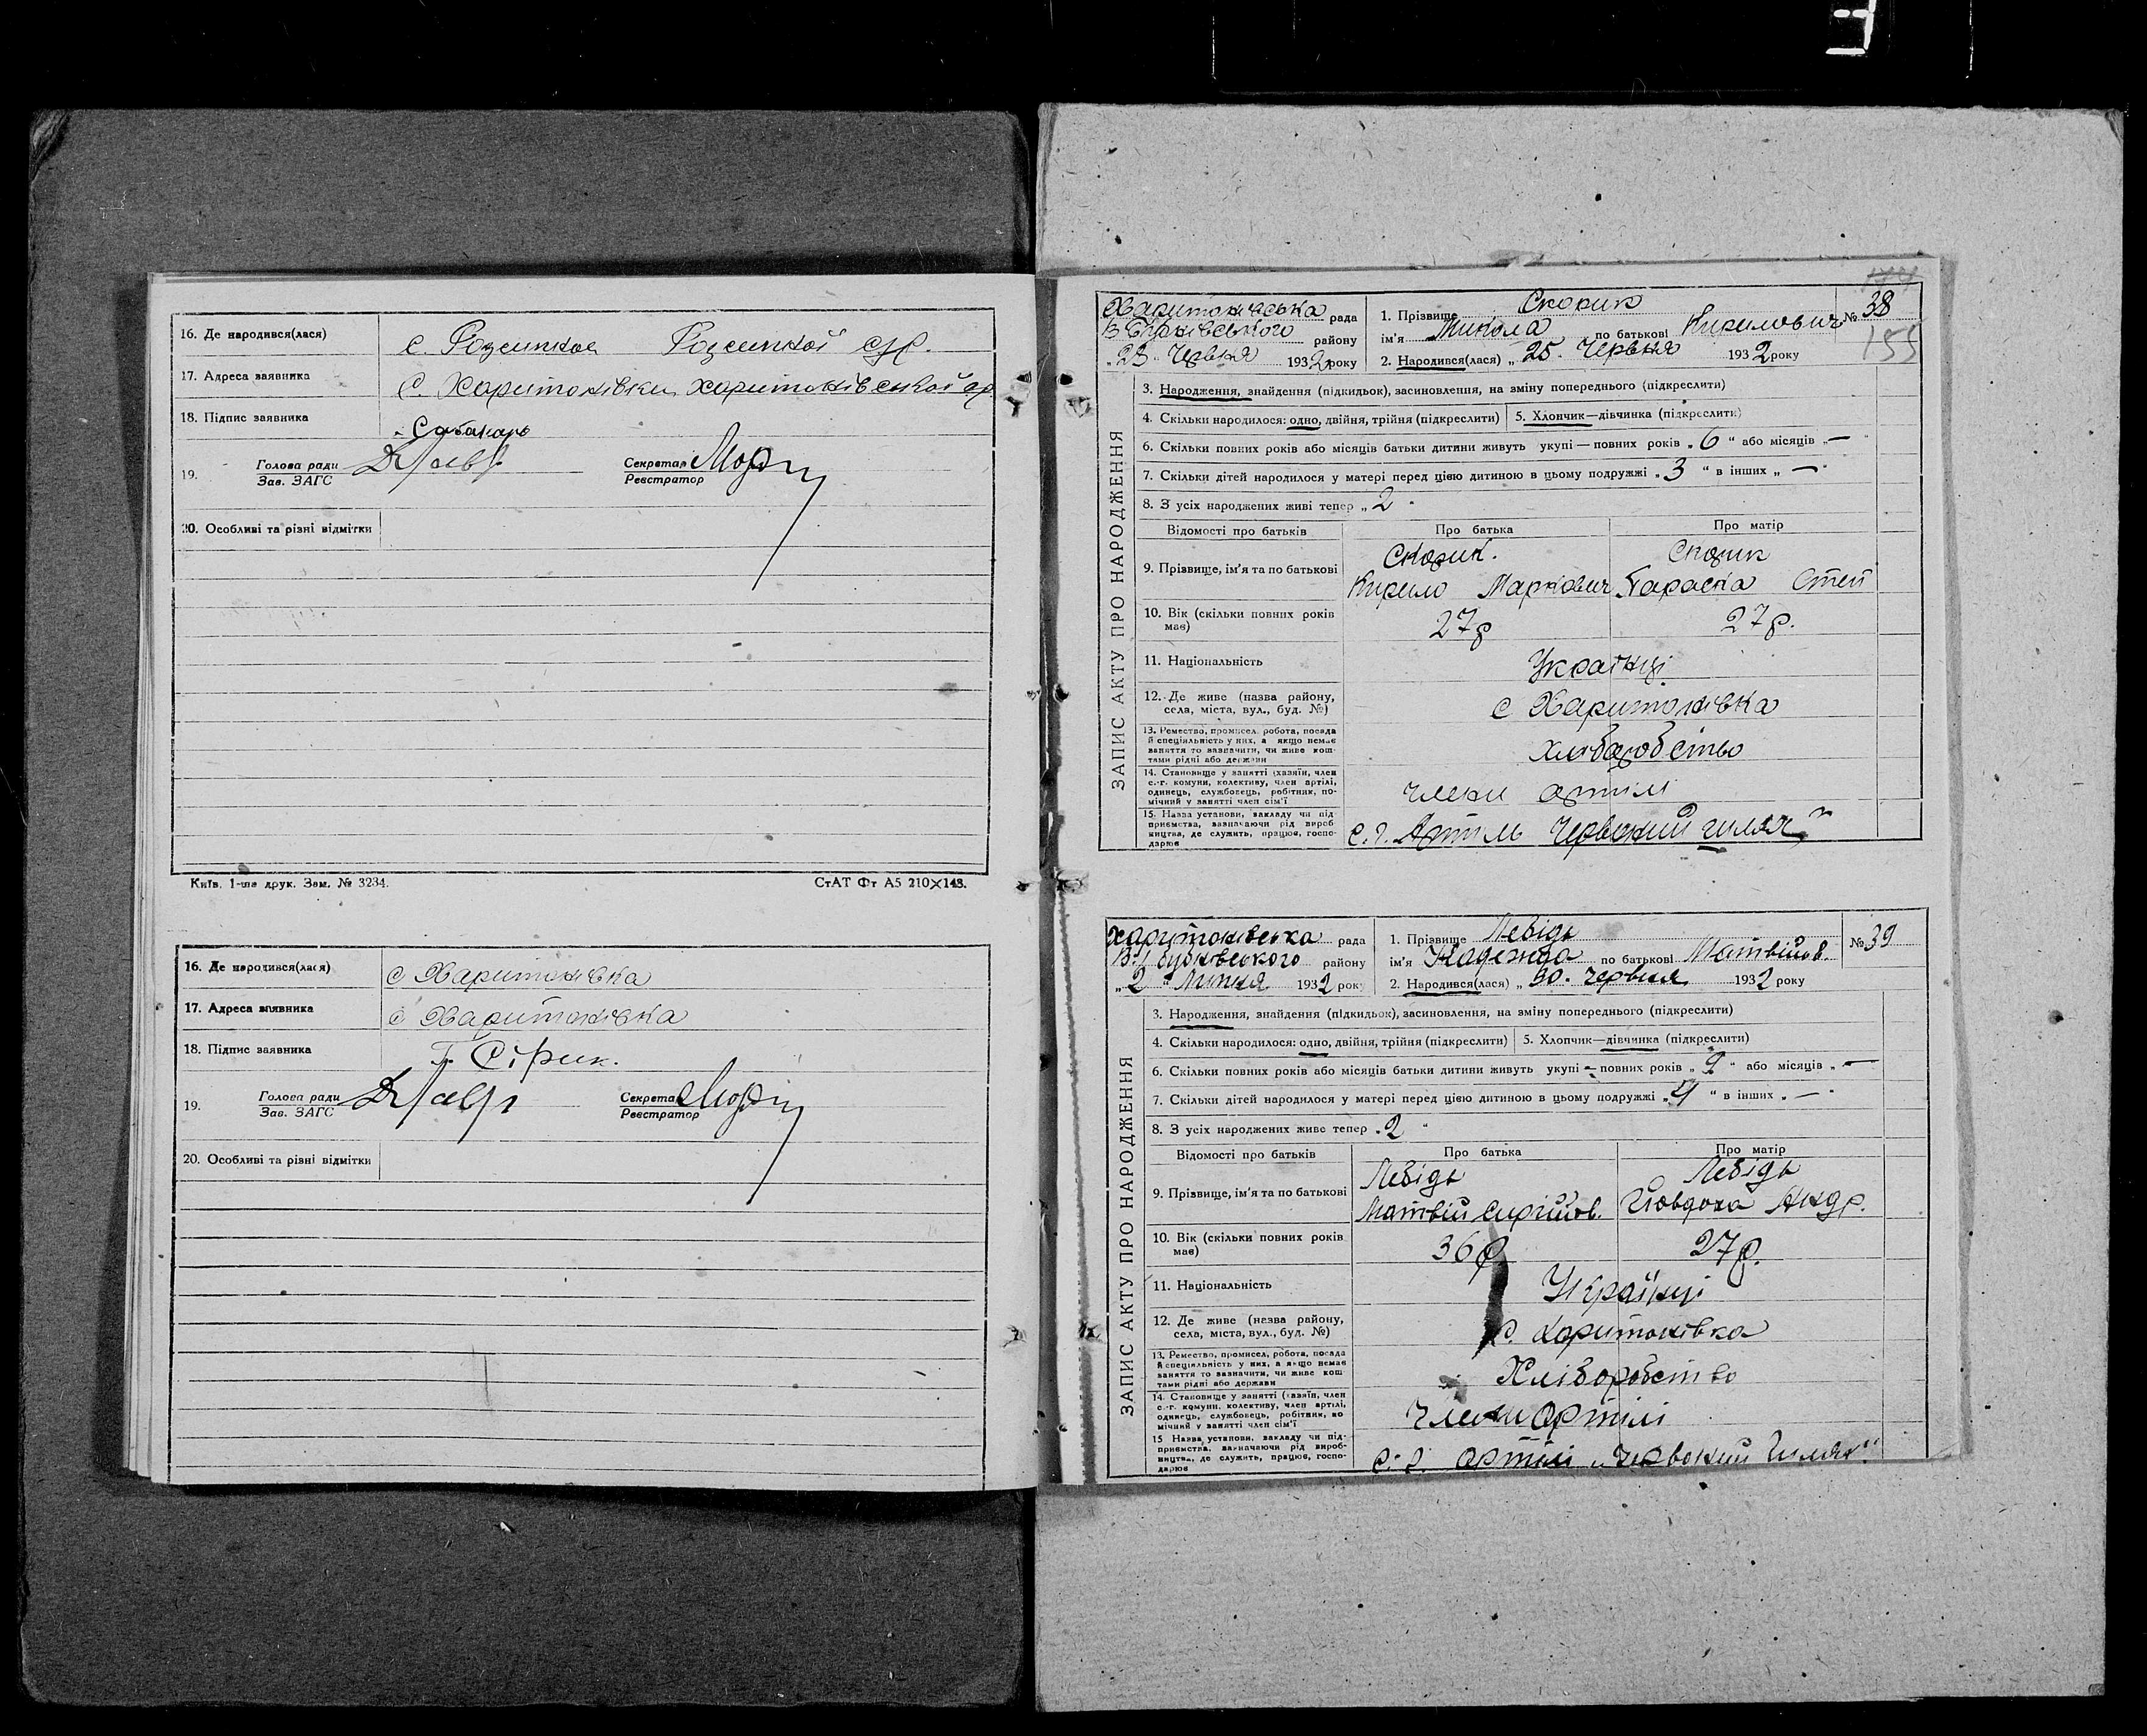 16. Де народився(лася)
17. Адреса заявника
с. Харитонівка, Харитонівської ср
18. Підпис заявника
19. Голова ради
Зав. ЗАГС
Секретар
Реєстратор
20. Особливі та різні відмітки
Київ. 1-ша друк. Зам. № 3234.
СтАТ Фт А5 210×148.
16. Де народився(лася) с Харитонівка
17. Адреса заявника с Харитонівка
18. Підпис заявника Г. Сірик.
19. Голова ради
Зав. ЗАГС
Секретар
Реєстратор
20. Особливі та різні відмітки
155
ЗАПИС АКТУ ПРО НАРОДЖЕННЯ
Харитонівська рада
району
"23" Червня 1932 року
1. Прізвище Скорик
ім'я Микола по батькові Кирилович
№ 38
2. Народився(лася) „25" Червня 1932 року
3. Народження, знайдення (підкидьок), засиновлення, на зміну попереднього (підкреслити)
4. Скільки народилося: одно, двійня, трійня (підкреслити)
5. Хлопчик—дівчинка (підкреслити)
6. Скільки повних років або місяців батьки дитини живуть укупі — повних років „6" або місяців „—"
7. Скільки дітей народилося у матері перед цією дитиною в цьому подружжі „3" в інших „—"
8. З усіх народжених живі тепер „2"
Відомості про батьків
Про батька
Про матір
9. Прізвище, ім'я та по батькові
Скорик.
Кирило Маркович
Скорик
Параска Степ
10. Вік (скільки повних років має)
27р
27р.
11. Національність
Українці
12. Де живе (назва району, села, міста, вул., буд. №)
с Харитонівка
13. Ремество, промисел, робота, посада й спеціяльність у них, а якщо немає заняття то зазначити, чи живе коштами рідні або держави
хліборобство
14. Становище у занятті (хазяїн, член с.-г. комуни, колективу, член артілі, одинець, службовець, робітник, помічний у занятті член сім'ї
члени артілі
15. Назва установи, закладу чи підприємства, зазначаючи рід виробництва, де служить, працює, господарює
с.г. Артіль Червоний шлях"
ЗАПИС АКТУ ПРО НАРОДЖЕННЯ
Харитонівська рада
району
„2" Липня 1932 року
1. Прізвище Лебідь
ім'я Надежда по батькові Матвійов.
№ 39
2. Народився(лася) „30" Червня 1932 року
3. Народження, знайдення (підкидьок), засиновлення, на зміну попереднього (підкреслити)
4. Скільки народилося: одно, двійня, трійня (підкреслити)
5. Хлопчик—дівчинка (підкреслити)
6. Скільки повних років або місяців батьки дитини живуть укупі — повних років „9" або місяців „—"
7. Скільки дітей народилося у матері перед цією дитиною в цьому подружжі „4" в інших „—"
8. З усіх народжених живе тепер „2"
Відомості про батьків
Про батька
Про матір
9. Прізвище, ім'я та по батькові
Лебідь
Матвій Сиргійов.
Лебідь
Йовдоха Андр.
10. Вік (скільки повних років має)
36р.
27р.
11. Національність
Українці
12. Де живе (назва району, села, міста, вул., буд. №)
с. Харитонівка
13. Ремество, промисел, робота, посада й спеціяльність у них, а якщо немає заняття то зазначити, чи живе коштами рідні або держави
Хліборобство
14. Становище у занятті (хазяїн, член с.-г. комуни, колективу, член артілі, одинець, службовець, робітник, помічний у занятті член сім'ї
Члени Артілі
15. Назва установи, закладу чи підприємства, зазначаючи рід виробництва, де служить, працює, господарює
с-г. артілі „Червоний Шлях"